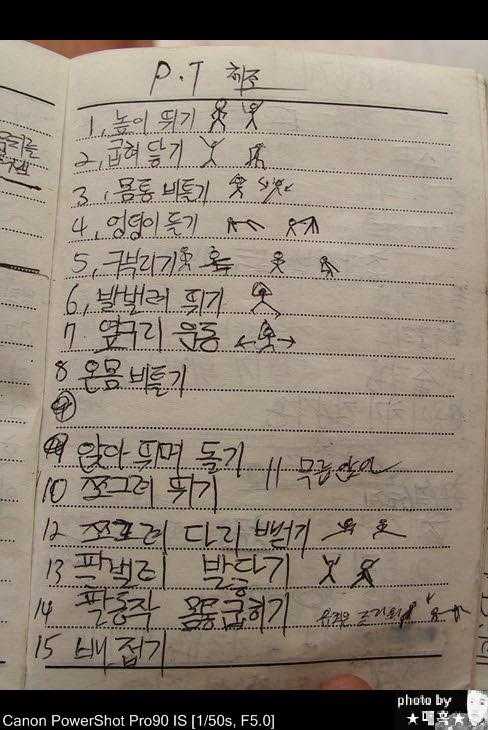 P.T 체조
1, 높이 뛰기
2, 굽혀 닿기
3, 몸통 비틀기
4, 엉덩이 들기
5, 구부리기
6, 발벌려 뛰기
7 옆구리 운동
8 온몸 비틀기
9
9 앉아 뛰며 돌기
10 쪼그려 뛰기
11 무릎
12 쪼그려 다리 뻗기
13 팔벌려 발닫기
14 팔동작 몸통굽히기
15 배 접기
photo by
★매혹★
Canon PowerShot Pro90 IS [1/50s, F5.0]